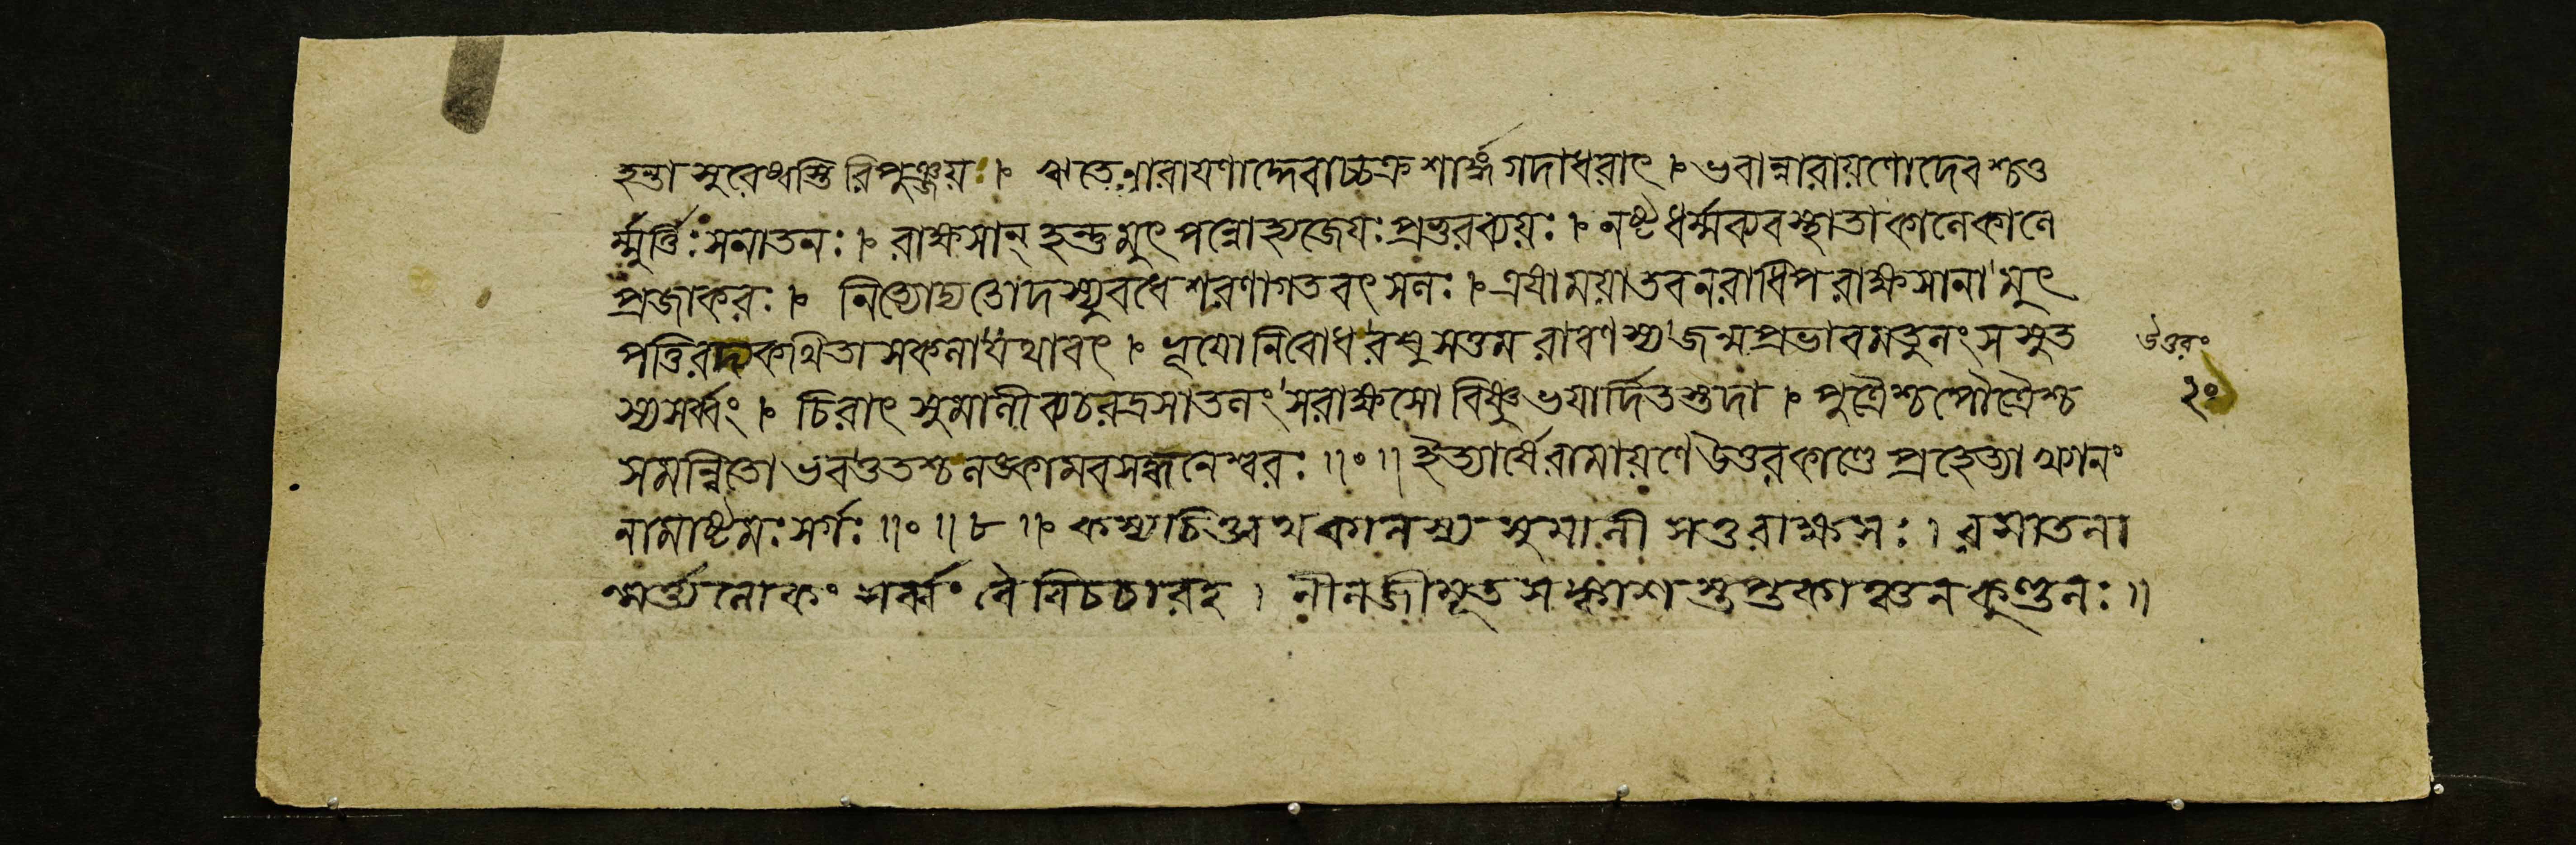 হন্তা সুরেষ্বস্তি রিপুঞ্জয়ঃ । ঋতে নারায়ণাদ্দেবাচ্চক্রশার্ঙ্গগদাধরাৎ । ভবান্নারায়ণোদেবশ্চতু
র্ম্মুর্ত্তিঃ সনাতনঃ । রাক্ষসান্ হন্তুমুৎপন্নোহ্যজেয়ঃ প্রভুরব্যয়ঃ । নষ্টধর্ম্মব্যবস্থাতা কালেকালে
প্রজাকরঃ । নিত্যোদ্যতো দস্যুবধে শরণাগতবৎসলঃ । এষা ময়া তব নরাধিপ রাক্ষসানা মুৎ
পত্তিরদ্য কথিতা সকলা যথাবৎ । ভূয়ো নিবোধ রঘুসত্তম রাবণস্য জন্মপ্রভাবমতুলং সসুত
স্য সর্ব্বং । চিরাৎ সুমালী ব্যচরদ্রসাতলং স রাক্ষসো বিষ্ণুভয়ার্দিতস্তদা । পুত্রৈশ্চ পৌত্রৈশ্চ
সমন্বিতো ততশ্চ লঙ্কামবসদ্ধনেশ্বরঃ ॥৹॥ ইত্যার্ষে রামায়ণে উত্তরকাণ্ডে
নামাষ্টমঃ সর্গঃ ॥৹॥ ৮ ॥ কস্যচিত্ত্বথ কালস্য সুমালী স তু রাক্ষসঃ । রসাতলা
ন্মর্ত্ত্যলোকং সর্ব্বং বৈ বিচচার হ । নীলজীমূতসঙ্কাশস্তপ্তকাঞ্চনকুণ্ডলঃ ॥
উত্তরং
২০